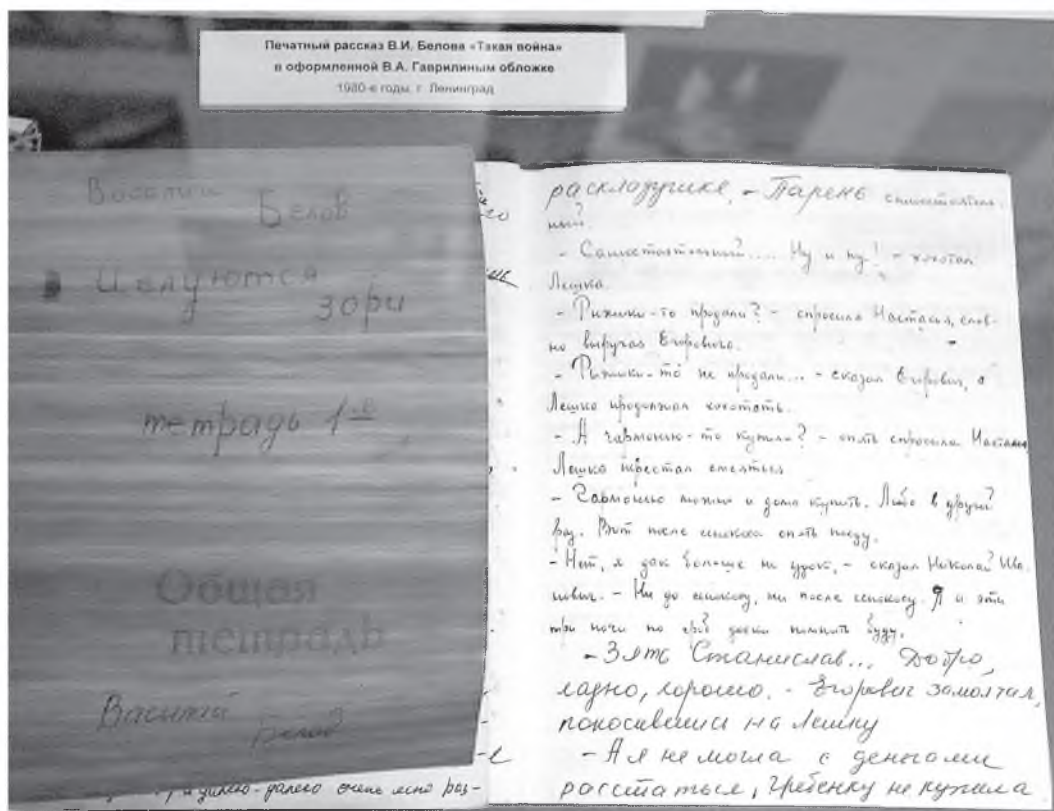 Печатный рассказ В.И. Белова «Такая война»
в оформленной В.А. Гаврилиным обложке
1980-е годы, г. Ленинград
Василий
Белов
Целуются
зори
тетрадь 1-я
Общая
тетрадь
Василий
Белов
далеко-далеко очень ясно раз-
раскладушке, - Парень самостоятель-
ный.
- Самостоятельный.... Ну и ну! - хохотал
Лешка.
- Рыжики-то продали? - спросила Настасья, слов-
но выручая Егоровича.
- Рыжики-то не продали... - сказал Егорович, а
Лешка продолжал хохотать.
- А гармонью-то купили? - опять спросила Настасья
Лешка перестал смеяться
- Гармонью можно и дома купить. Либо в другой
раз. Вот после сенокоса опять поеду.
- Нет, я дак больше не ездок, - сказал Николай Ива-
нович. - Ни до сенокосу, ни после сенокосу. Я и эти
три ночи по гроб доски помнить буду.
- Зять Станислав... Добро,
ладно, хорошо. - Егорович замолчал,
покосившись на Лешку
- А я не могла с деньгами
расстаться, Гребенку не купила